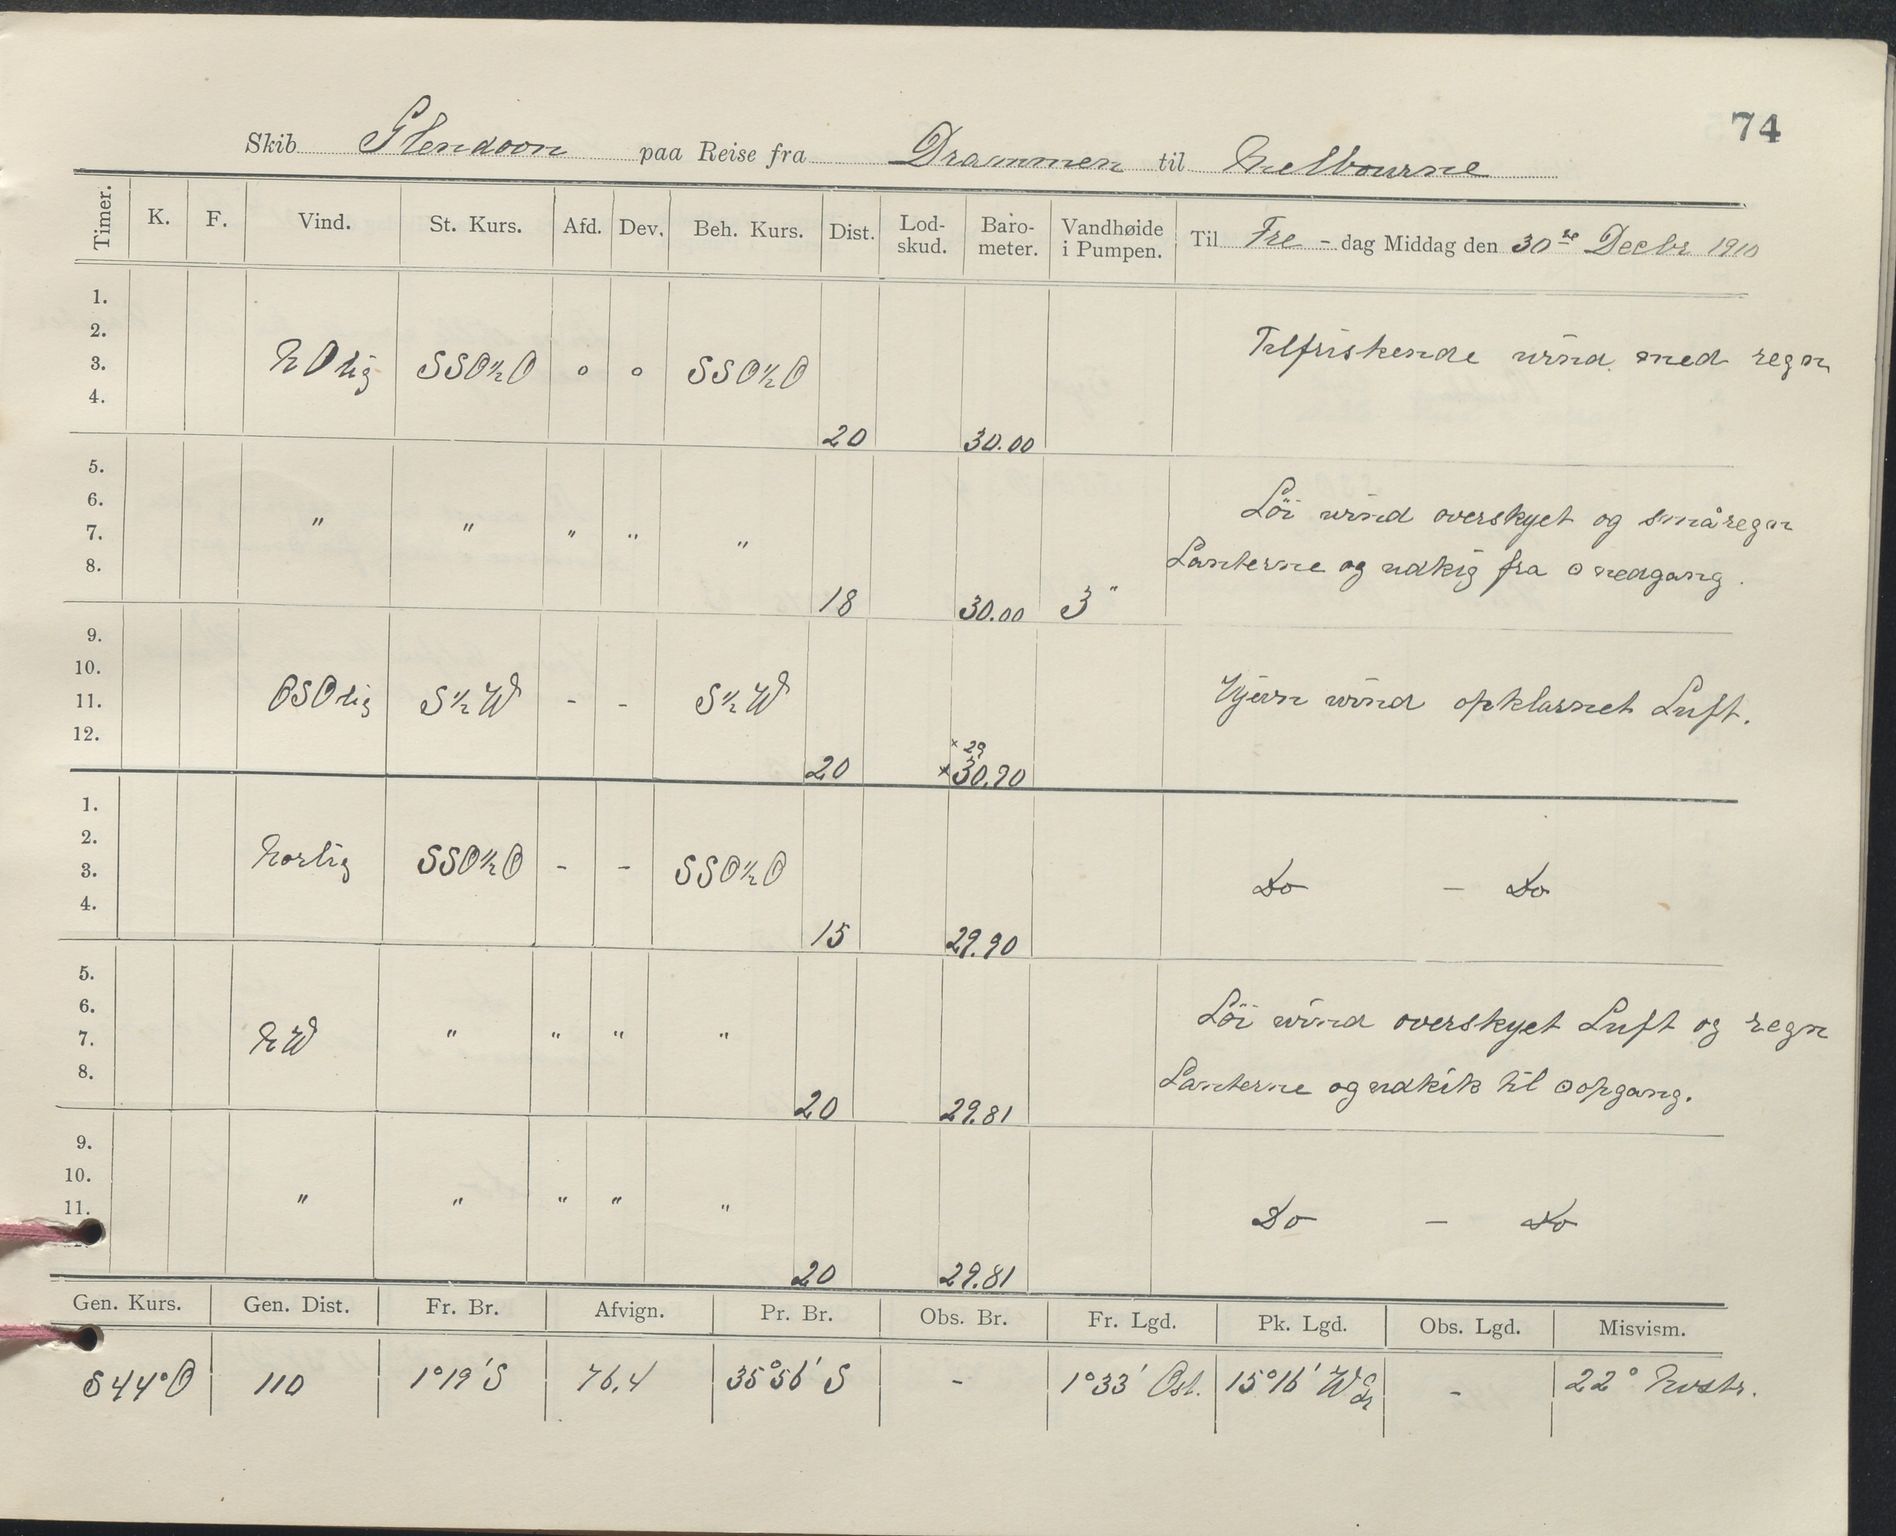 74
Skib Glendoon paa Reise fra Drammen til Melbourne
Timer. K. F. Vind. St. Kurs. Afd. Dev. Beh. Kurs. Dist. Lod-skud. Baro-meter. Vandhøide i Pumpen. Til Fre - dag Middag den 30te Decbr 1910
1.
2.
3. NOlig SSO½O o o SSO½O Tilfriskende wind med regn
4.
20 30.00
5.
6.
7. " " " " " Löi wind overskyet og småregn
8. Lanterne og udkig fra ⊙ nedgang.
18 30.00 3"
9.
10.
11. OSOlig S½W - - S½W Vjevn wind opklarnet Luft.
12.
× 29
20 ×30.90
1.
2.
3. Norlig SSO½O - - SSO½O Do - Do
4.
15 29.90
5.
6.
7. NW " " " " Löi wind overskyet Luft og regn
8. Lanterne og udkik til ⊙opgang.
20 29.81
9.
10.
11. " " " " " Do - Do
20 29.81
Gen. Kurs. Gen. Dist. Fr. Br. Afvign. Pr. Br. Obs. Br. Fr. Lgd. Pk. Lgd. Obs. Lgd. Misvism.
S44°O 110 1°19'S 76.4 35°56' S - 1°33' Ost. 15°16' W - 22° Nvstr.